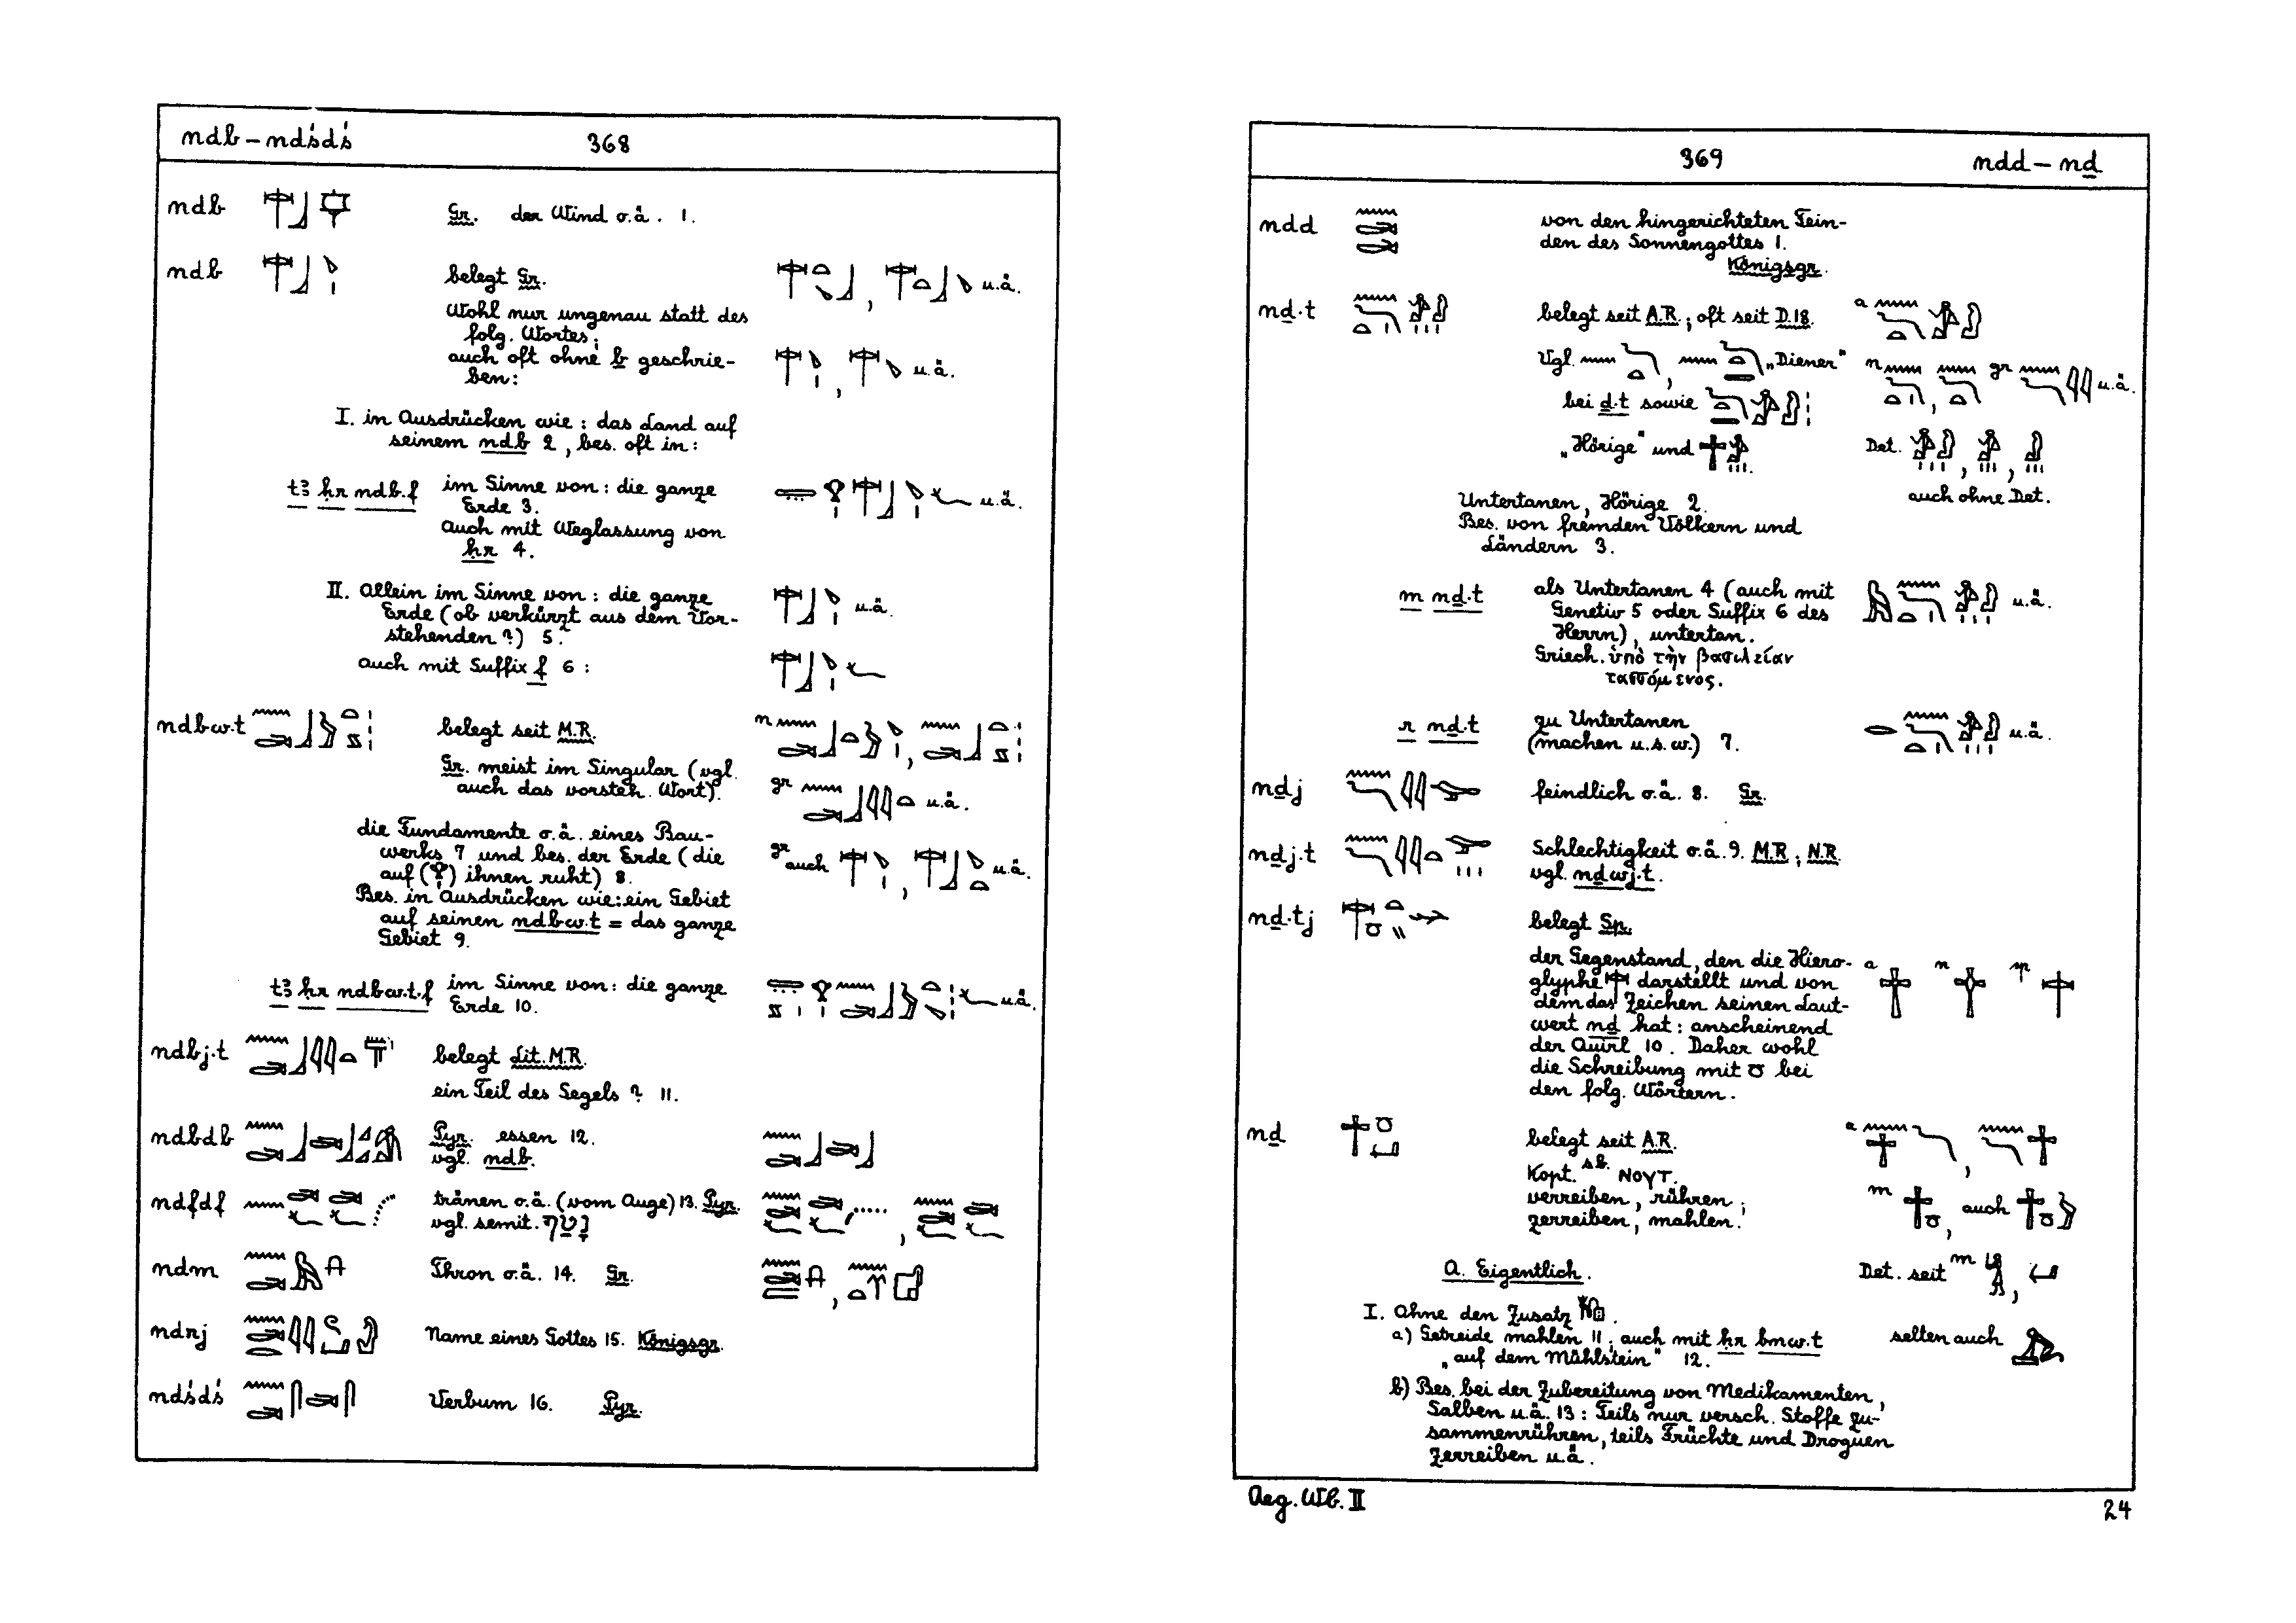 ndb – ndśdś 368
ndb Gr. der Wind o.ä. 1.
ndb belegt Gr. u.ä.
Wohl nur ungenau statt des
folg. Wortes;
auch oft ohne b geschrie-
ben: u.ä.
I. in Ausdrücken wie: das Land auf
seinem ndb 2, bes. oft in:
tꜣ ḥr ndb.f im Sinne von: die ganze u.ä.
Erde 3.
Auch mit Weglassung von
ḥr 4.
II. Allein im Sinne von: die ganze
Erde (ob verkürzt aus dem Vor- u.ä.
stehenden?) 5.
auch mit Suffix f 6:
ndbw.t belegt seit M.R. n
Gr. meist im Singular (vgl.
auch das vorsteh. Wort). gr u.ä.
die Fundamente o.ä. eines Bau-
werks 7 und bes. der Erde (die gr auch u.ä.
auf ( ) ihnen ruht) 8.
Bes. in Ausdrücken wie: ein Gebiet
auf seinen ndbw.t = das ganze
Gebiet 9.
tꜣ ḥr ndbw.t.f im Sinne von: die ganze u.ä.
Erde 10.
ndbj.t belegt Lit. M.R.
ein Teil des Segels? 11.
ndbdb Pyr. essen 12.
vgl. ndb.
ndfdf tränen o.ä. (vom Auge) 13. Pyr.
vgl. semit.
ndm Thron o.ä. 14. Gr.
ndrj Name eines Gottes 15. Königsgr.
ndśdś Verbum 16. Pyr.
369 ndd – nḏ
ndd von den hingerichteten Fein-
den des Sonnengottes 1.
Königsgr.
nḏ.t belegt seit A.R.; oft seit D.18. a
Vgl. , „Diener" n , gr u.ä.
bei ḏ.t sowie
„Hörige" und . Det. , ,
auch ohne Det.
Untertanen, Hörige 2.
Bes. von fremden Völkern und
Ländern 3.
m nḏ.t als Untertanen 4 (auch mit
Genetiv 5 oder Suffix 6 des u.ä.
Herrn), untertan.
Griech. ὑπὸ τὴν βασιλείαν
τασσόμενος.
r nḏ.t zu Untertanen u.ä.
(machen u.s.w.) 7.
nḏj feindlich o.ä. 8. Gr.
nḏj.t Schlechtigkeit o.ä. 9. M.R.; N.R.
vgl. nḏwj.t.
nḏ.tj belegt Sp.
der Gegenstand, den die Hiero- a n sp
glyphe darstellt und von
dem das Zeichen seinen Laut-
wert nḏ hat: anscheinend
der Quirl 10. Daher wohl
die Schreibung mit bei
den folg. Wörtern.
nḏ belegt seit A.R. a
Kopt. sB. ΝΟΥΤ.
verreiben, rühren; m , auch
zerreiben, mahlen.
A. Eigentlich. Det. seit m ,
I. Ohne den Zusatz .
a) Getreide mahlen 11; auch mit ḥr bmw.t selten auch
„auf dem Mühlstein" 12.
b) Bes. bei der Zubereitung von Medikamenten,
Salben u.ä. 13: Teils nur versch. Stoffe zu-
sammenrühren, teils Früchte und Droguen
zerreiben u.ä.
Aeg. Wb. II 24